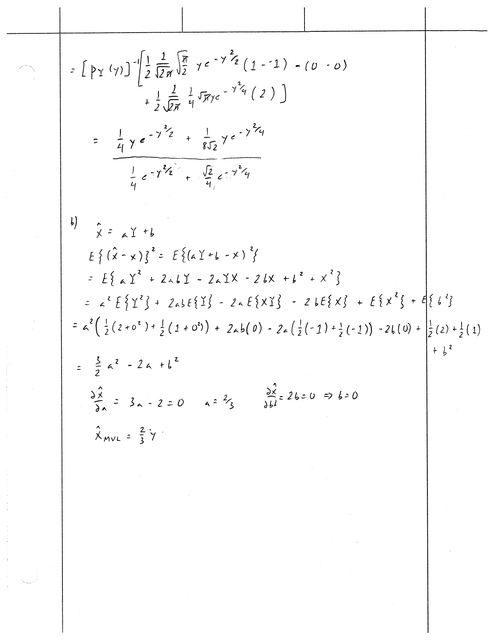 = [PY(y)]⁻¹ [ 1/2 2/√2π √π/2 y e^-y²/2 (1 - -1) - (0 - 0)
+ 1/2 2/√2π 1/4 √π y e^-y²/4 (2) ]
= (1/4 y e^-y²/2 + 1/8√2 y e^-y²/4) / (1/4 e^-y²/2 + √2/4 e^-y²/4)
b)
x̂ = aY + b
E{(x̂ - x)}² = E{(aY + b - x)²}
= E{aY² + 2abY - 2aYX - 2bX + b² + x²}
= a² E{Y²} + 2abE{Y} - 2aE{XY} - 2bE{X} + E{x²} + E{b²}
= a²(1/2(2+0²) + 1/2(1+0²)) + 2ab(0) - 2a(1/2(-1) + 1/2(-1)) - 2b(0) + 1/2(2) + 1/2(1)
+ b²
= 3/2 a² - 2a + b²
∂x̂/∂a = 3a - 2 = 0 a = 2/3 ∂x̂/∂b = 2b = 0 ⇒ b = 0
x̂MVL = 2/3 y